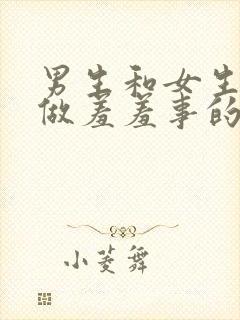 男生和女生
做羞羞事的
小菱舞